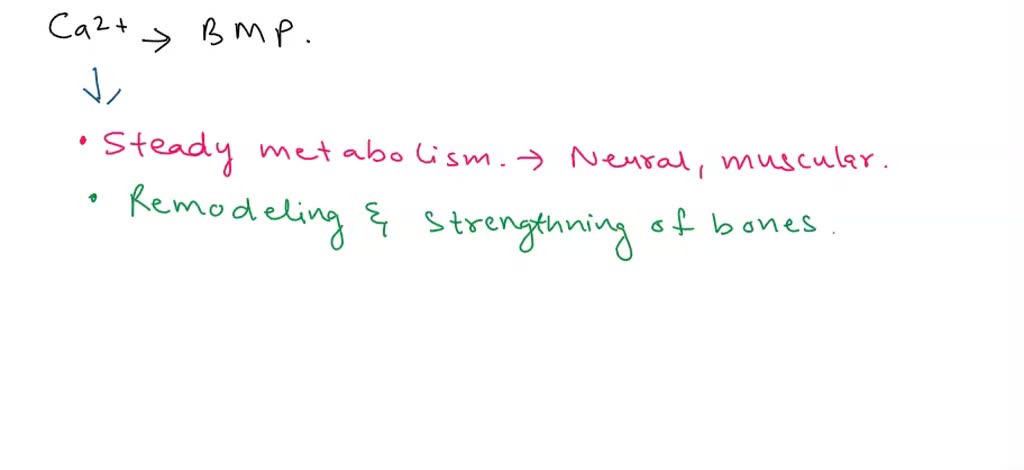 Ca2+ → BMP.
↓
• Steady metabolism. → Neural, muscular.
• Remodeling & strengthning of bones.